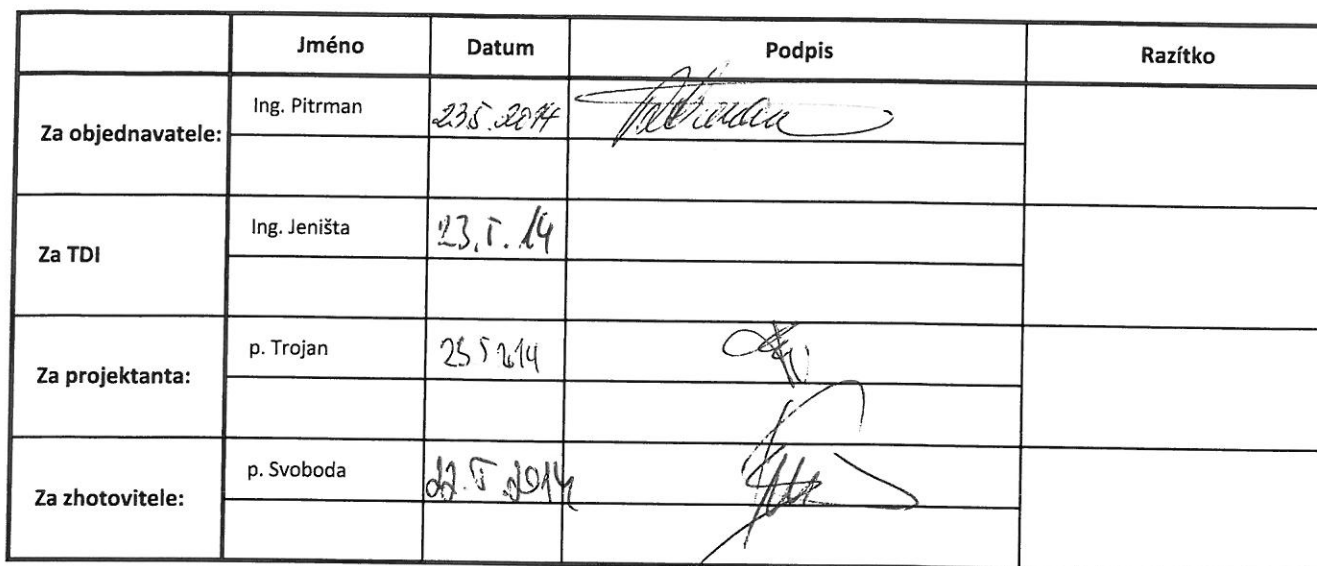 Jméno Datum Podpis Razítko
Za objednavatele: Ing. Pitrman 23.5.2014
Za TDI Ing. Jeništa 23.5.14
Za projektanta: p. Trojan 23 5 2014
Za zhotovitele: p. Svoboda 22.5.2014